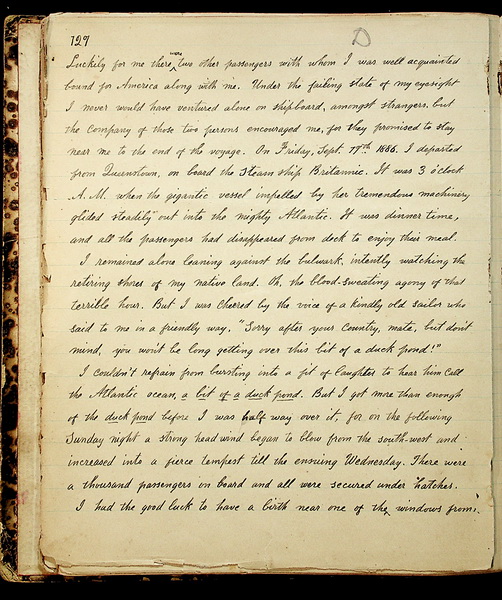 129
D
Luckily for me there were two other passengers with whom I was well acquainted
bound for America along with me. Under the failing state of my eyesight
I never would have ventured alone on shipboard, amongst strangers. but
the company of those two persons encouraged me, for they promised to stay
near me to the end of the voyage. On Friday, Sept. 17th 1886. I departed
from Queenstown, on board the Steam ship Britannic. It was 3 o'clock
A. M. when the gigantic vessel impelled by her tremendous machinery
glided steadily out into the mighty Atlantic. It was dinner time,
and all the passengers had disappeared from deck to enjoy their meal.
I remained alone leaning against the bulwark, intently watching the
retiring shores of my native land. Oh, the blood-sweating agony of that
terrible hour. But I was cheered by the voice of a kindly old sailor who
said to me in a friendly way, "Sorry after your Country, mate, but don't
mind, you won't be long getting over this bit of a duck pond!"
I couldn't refrain from bursting into a fit of laughter to hear him call
the Atlantic ocean, a bit of a duck pond. But I got more than enough
of the duck pond before I was half way over it, for on the following
Sunday night a strong head wind began to blow from the south-west and
increased into a fierce tempest till the ensuing Wednesday. There were
a thousand passengers on board and all were secured under hatches.
I had the good luck to have a birth near one of the windows from